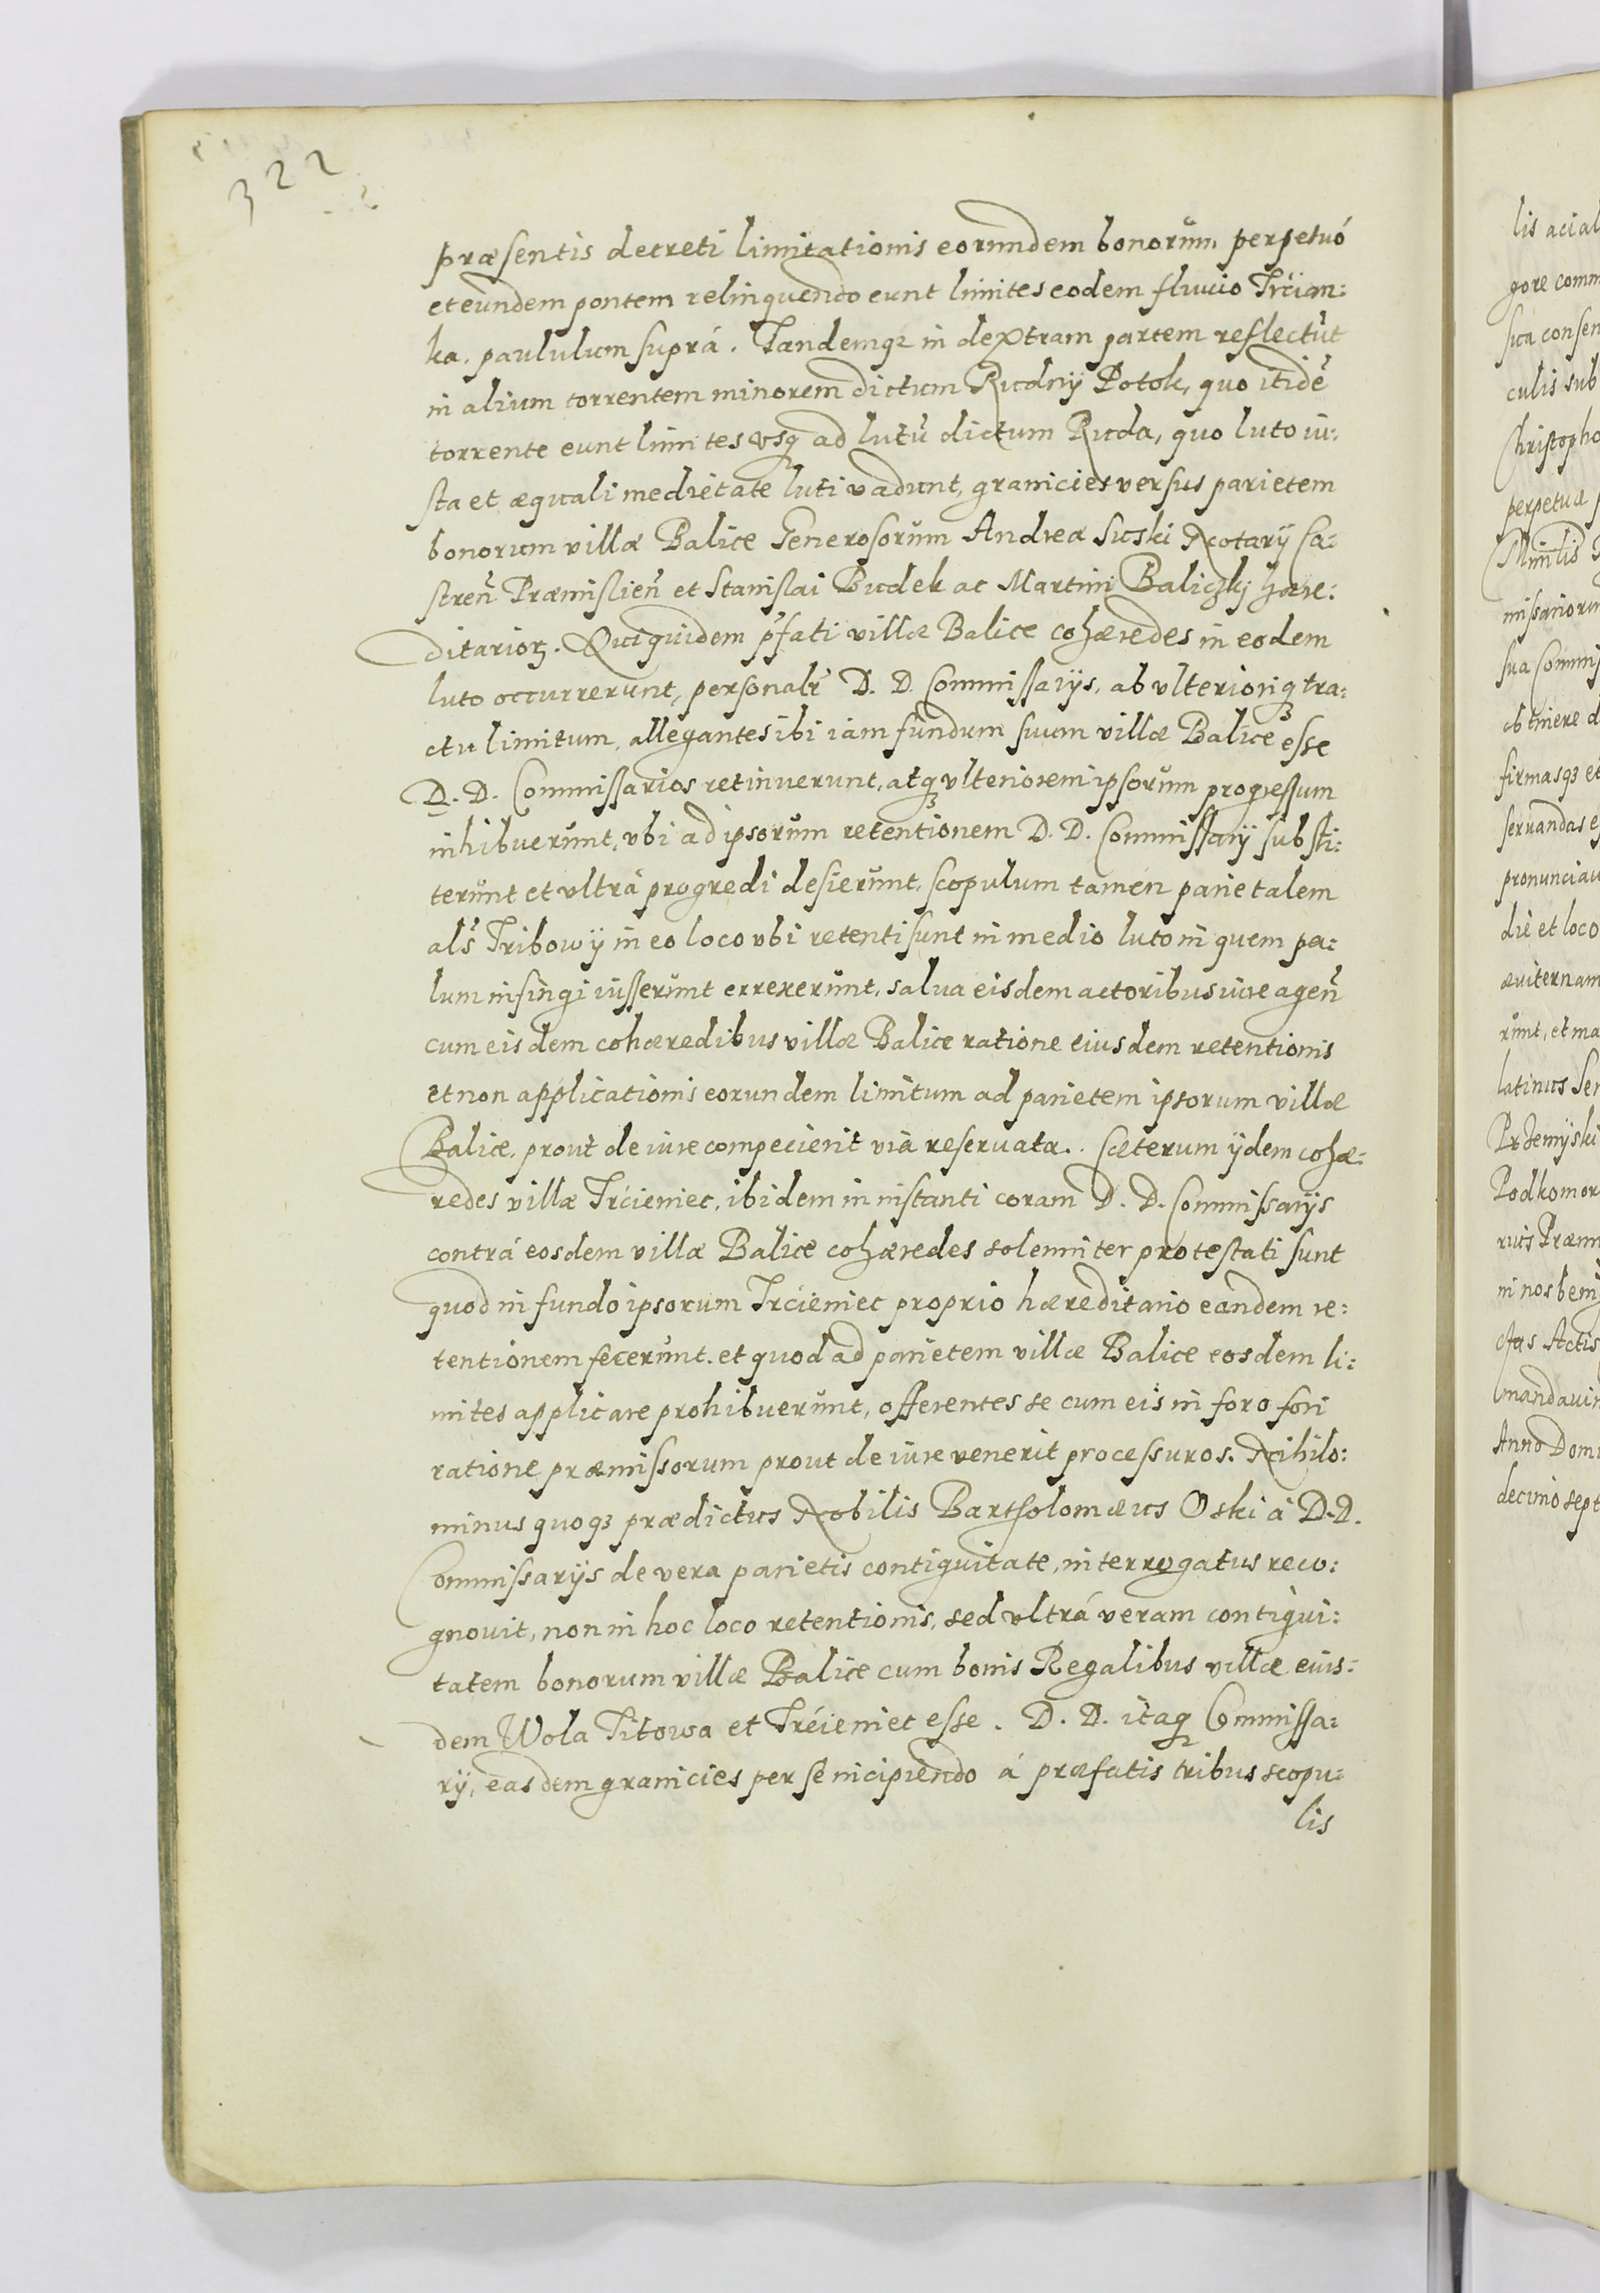 322
præsentis decreti limitationis eorundem bonorũm perpetuó
et eundem pontem relinquendo eunt limites eodem fluuio Trcian:
ka, paululum suprá. Tandemq; in dextram partem reflectũt
in alium torrentem minorem dictum Rudny Potok, quo itidẽ
torrente eunt limites vsq; ad lutũ dictum Ruda, quo luto iu:
sta et æquali medietate luti vadunt, granicies versus parietem
bonorum villæ Balice Generosorũm Andreæ Suski Notarÿ Ca:
streñ Præmislieñ et Stanislai Budek ac Martini Baliczkÿ hære:
ditarioꝝ. Quiquidem p̃fati villæ Balice cohæredes in eodem
luto occurrerunt, personalr̃ D. D. Commissarÿs, ab vlterioriq; tra:
ctu limitum, allegantes ibi iam fundum suum villæ Balice esse
D. D. Commissarios retinuerunt, atq; vlteriorem ipsorũm progressum
inhibuerũnt, vbi ad ipsorũm retentionem D. D. Commissarÿ substi:
terũnt et vltrà progredi desierũnt, scopulum tamen parietalem
als̃ Tribowÿ in eo loco vbi retenti sunt in medio luto in quem pa:
lum infingi iusserũnt errexerũnt, salua eisdem actoribus iure ageñ
cum eisdem cohæredibus villæ Balice ratione eiusdem retentionis
et non applicationis eorundem limitum ad parietem ipsorum villæ
Balice, prout de iure compecierit via reseruata. Cæterum ÿdem cohæ:
redes villæ Trcieniec, ibidem in instanti coram D. D. Commissarÿs
contrá eosdem villæ Balice cohæredes solenniter protestati sunt
quod in fundo ipsorum Trcieniec proprio hæreditario eandem re:
tentionem fecerũnt. et quod ad parietem villæ Balice eosdem li:
mites applicare prohibuerũnt, offerentes se cum eis in foro fori
ratione præmissorum prout de iure venerit processuros. Nihilo:
minus quoq; prædictus Nobilis Bartholomæus Oski à D. D.
Commissarÿs de vera parietis contiguitate, interrogatus reco:
gnouit, non in hoc loco retentionis, sed vltrá veram contigui:
tatem bonorum villæ Balice cum bonis Regalibus villæ eius:
dem Wola Titowa et Trcieniec esse. D. D. itaq; Commissa:
rÿ, easdem granicies per se incipiendo á præfatis tribus scopu:
lis
lis acial
gore comm
sua consen
culis sub
Christopho
perpetuæ
missariorum
sua Commis
obtinere d
firmasq; et
seruandas e
pronunciau
die et loco
æuiternam
rũnt, et ma
latinus Ser
Przemÿski
Podkomor
rus Præm
in nos bem
Actis
mandauim
Anno Domi
decimo sept